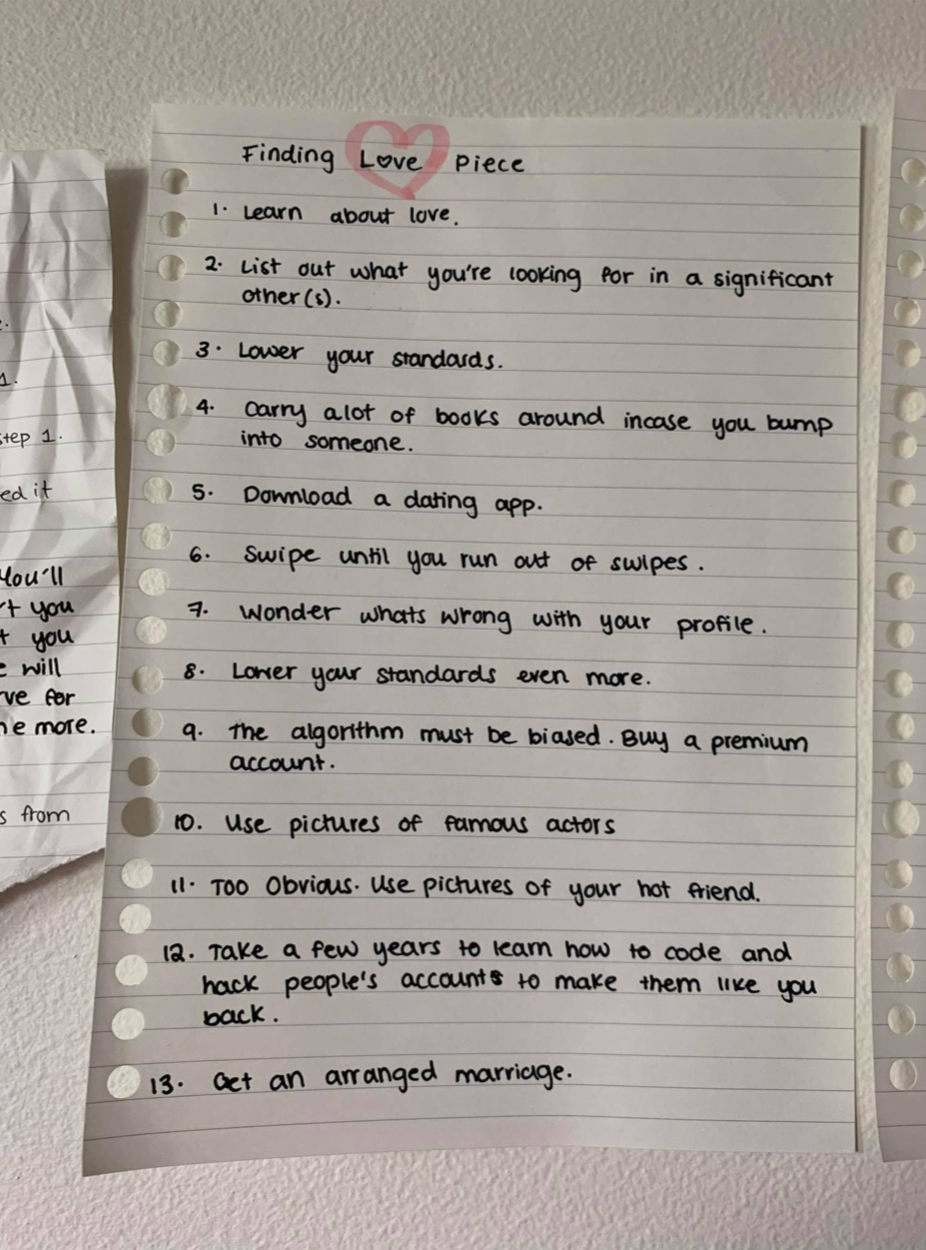 Finding Love Piece
1. Learn about love.
2. List out what you're looking for in a significant
other(s).
3. Lower your standards.
4. Carry alot of books around incase you bump
into someone.
5. Download a dating app.
6. Swipe until you run out of swipes.
7. Wonder whats wrong with your profile.
8. Lower your standards even more.
9. The algorithm must be biased. Buy a premium
account.
10. Use pictures of famous actors
11. Too Obvious. Use pictures of your hot friend.
12. Take a few years to learn how to code and
hack people's accounts to make them like you
back.
13. Get an arranged marriage.
1.
step 1.
ed it
You'll
't you
t you
will
ve for
e more.
s from